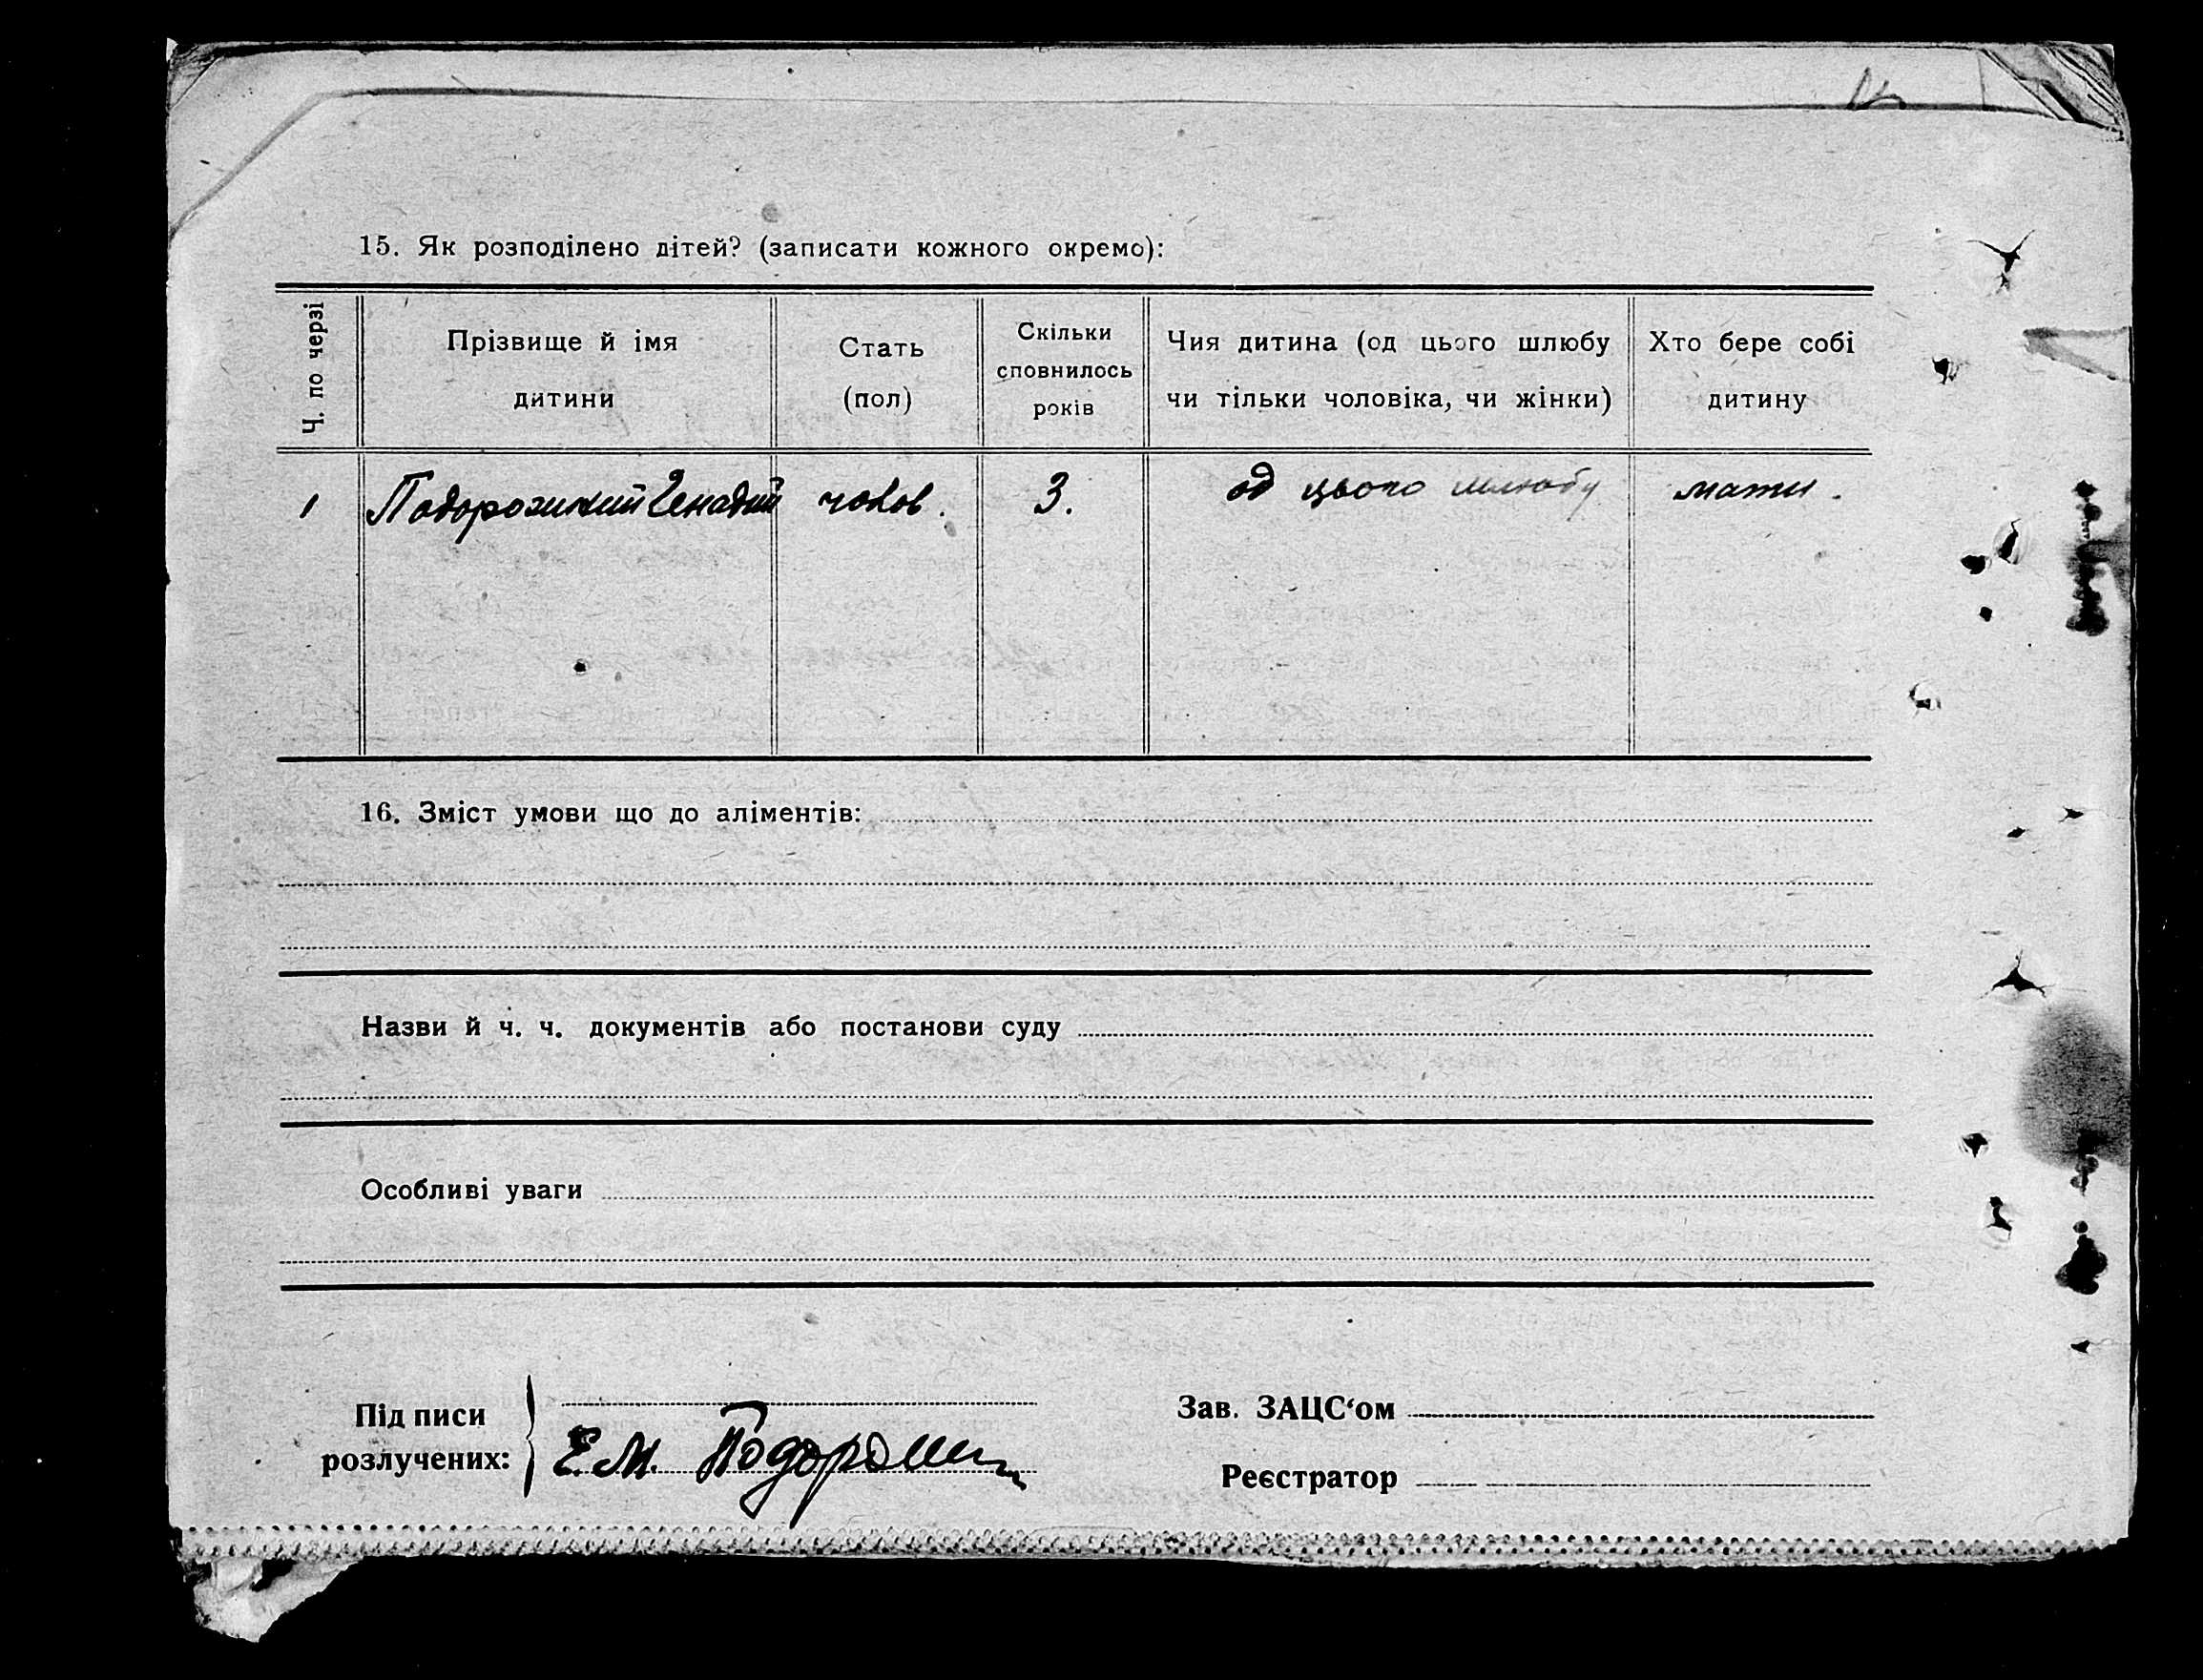 15. Як розподілено дітей? (записати кожного окремо):
Ч. по черзі
Прізвище й імя дитини
Стать (пол)
Скільки сповнилось років
Чия дитина (од цього шлюбу чи тільки чоловіка, чи жінки)
Хто бере собі дитину
1 Подорожний Генадий чолов. 3. од цього шлюбу мати.
16. Зміст умови що до аліментів:
Назви й ч. ч. документів або постанови суду
Особливі уваги
Підписи
розлучених:
Е.М.
Зав. ЗАЦС‘ом
Реєстратор